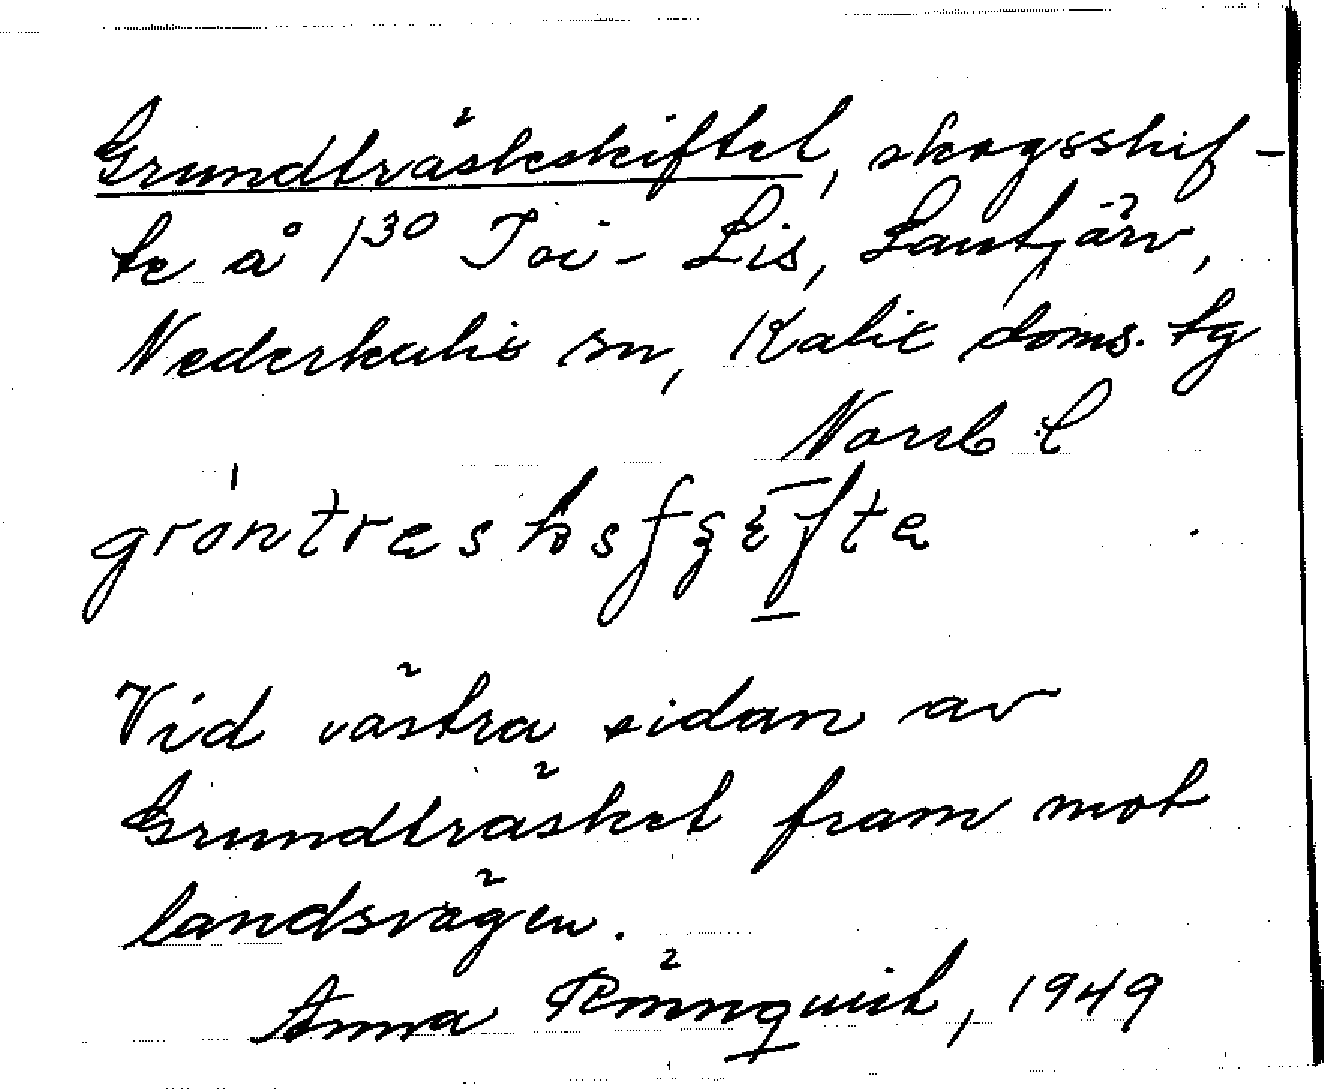 Grundträskskiftet, skogsskif-
te å 1³⁰ Toi-Lis, Lantjärv,
Nederkalix sn, Kalix doms. tg
Norrb l
Vid västra sidan av
Grundträsket fram mot
landsvägen.
Anna Rönnqvist, 1949